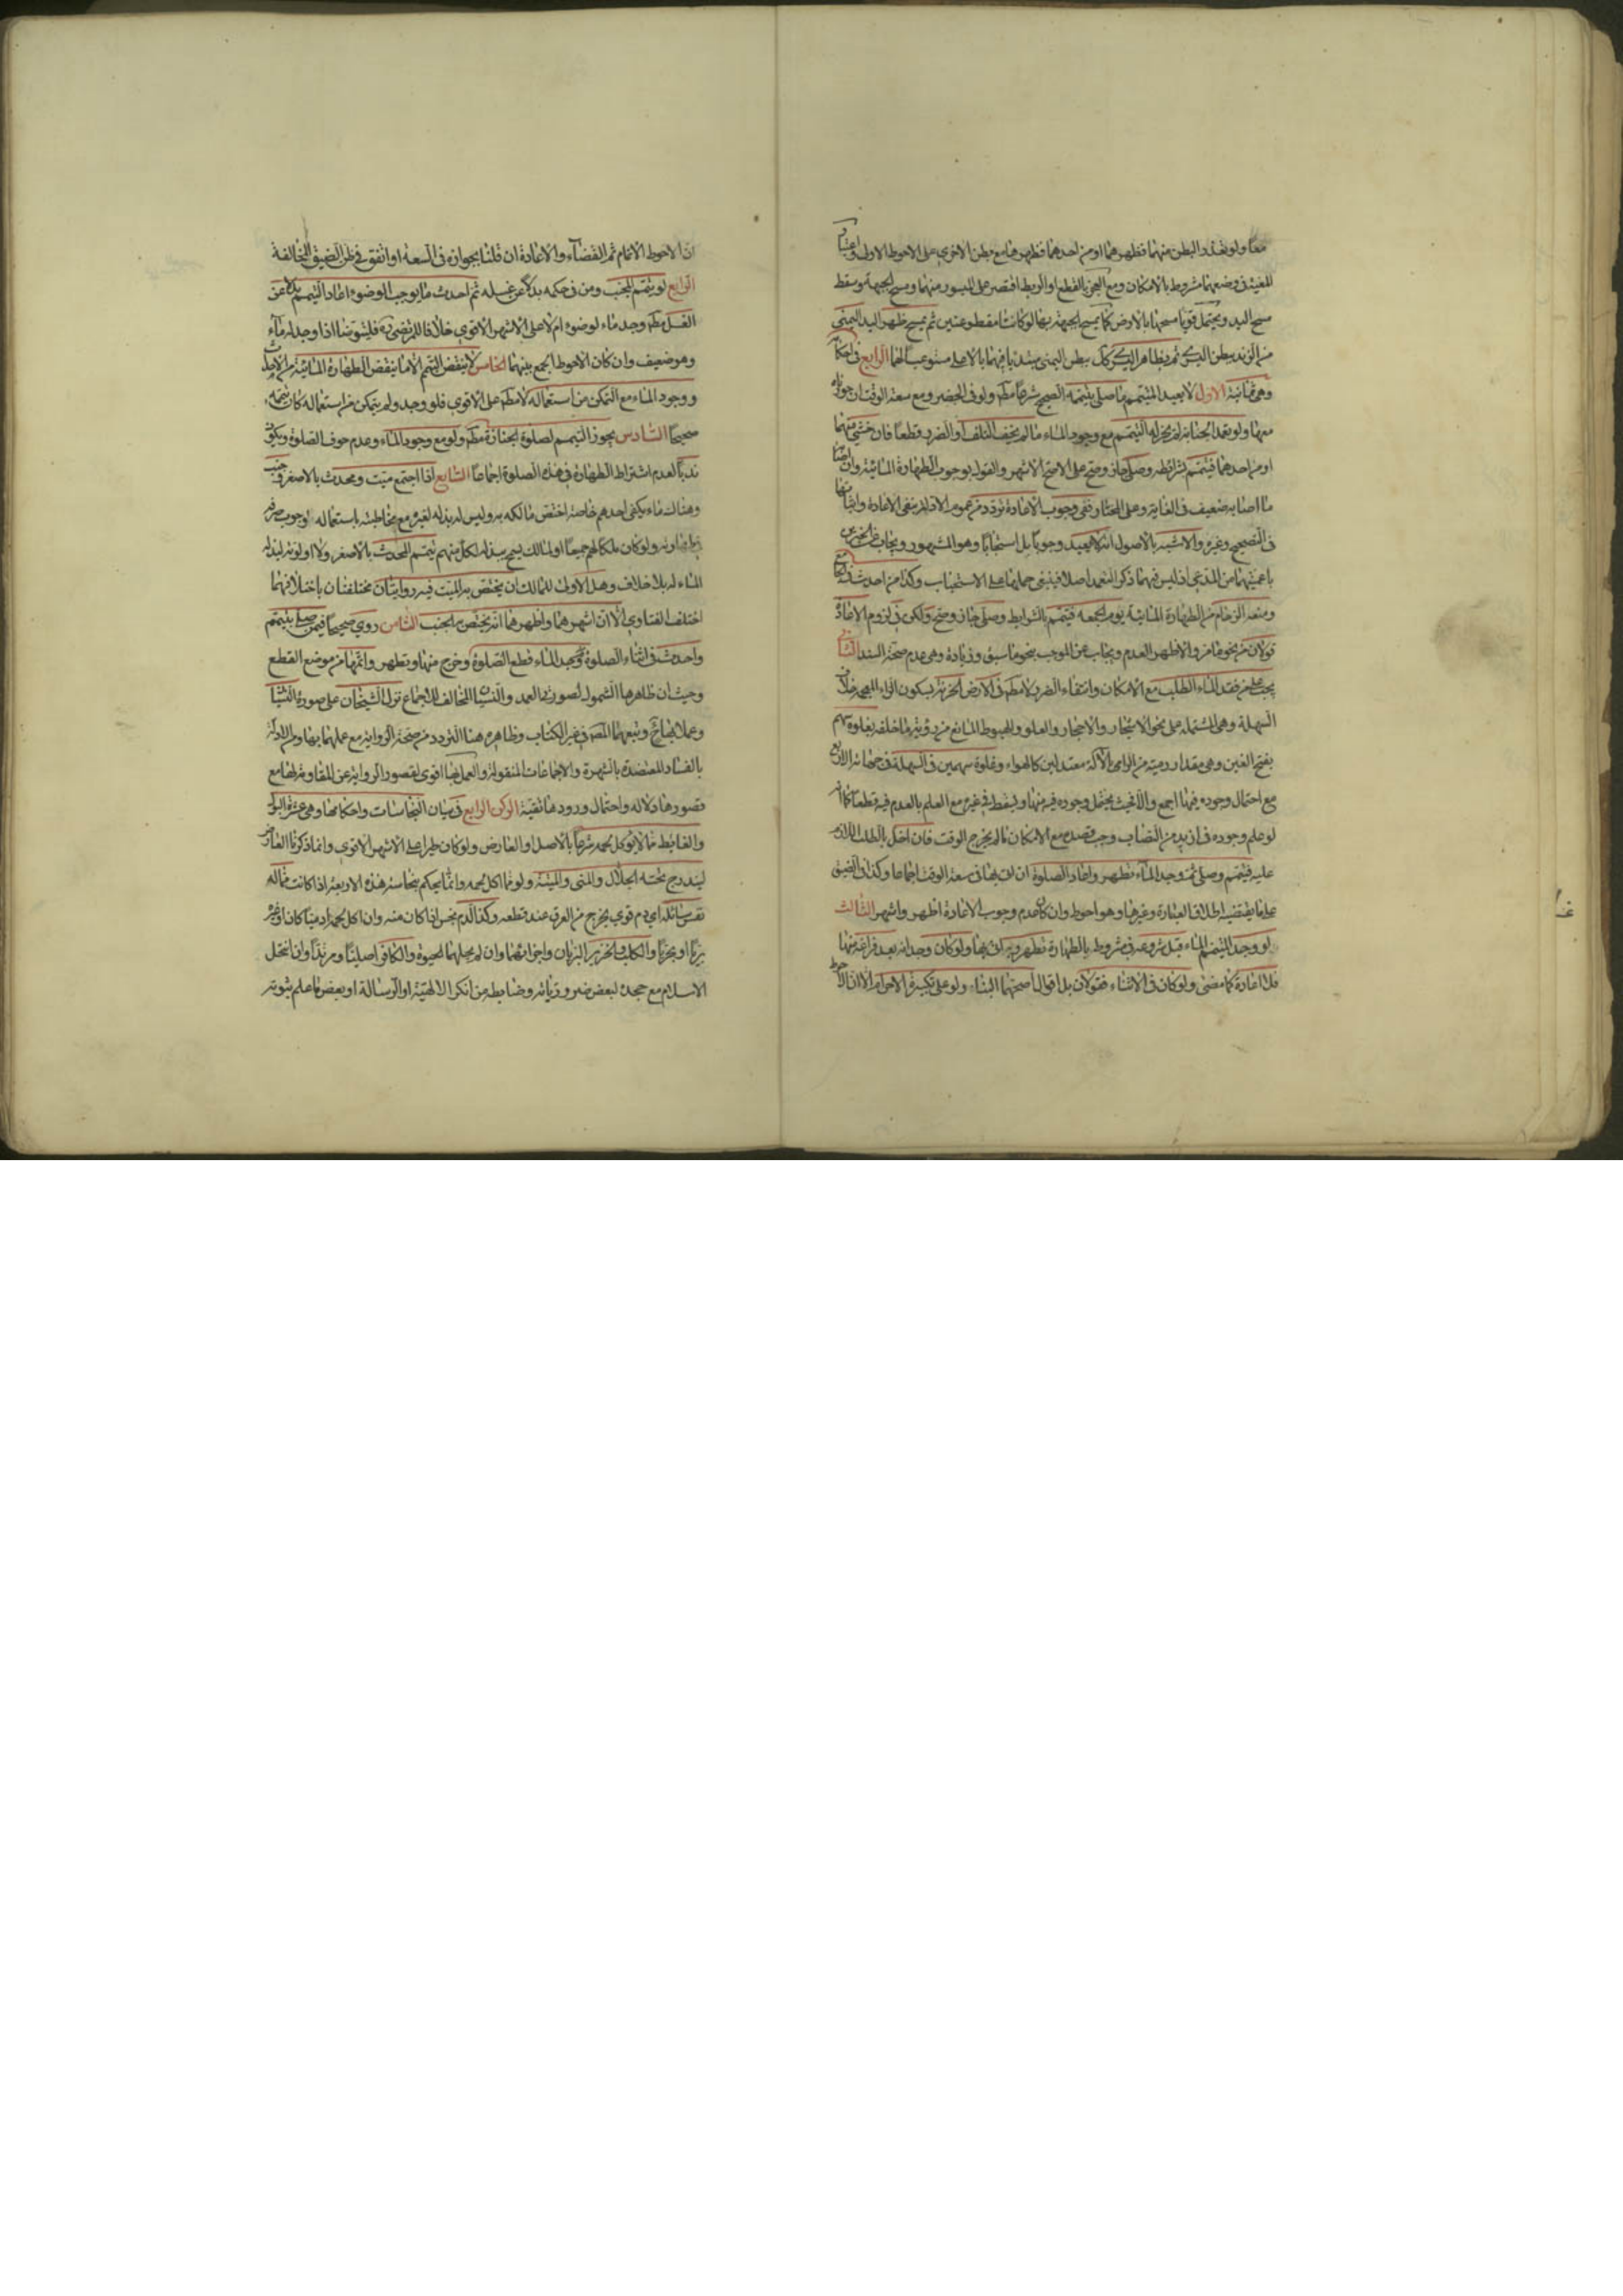 معا ولو تعذر البطن منهما فظهرهما او من احدهما فظهرها مع بطن الاخرى على الاحوط الاولى واعتبار
المعية في وضعهما مشروط بالامكان ومع العجز بالقطع او الربط اقتصر على الميسور منهما ومسح الجبهة وسقط
مسح اليد ويحتمل قويا مسحها بالارض كما يمسح الجبهة بها لو كانتا مقطوعتين ثم يمسح ظهر اليد اليمنى
من الزند ببطن اليسرى ثم بظاهر اليسرى كك ببطن اليمنى مبتديا فيهما بالاعلى مستوعبا لهما الرابع في احكامه
وهي ثمانية الاول لا يعيد المتيمم ما صلى بتيممه الصحيح شرعا مطم ولو في الحضر ومع سعة الوقت ان جوزناه
معها ولو تعمد الجنابة لم يجز له التيمم مع وجود الماء ما لم يخف التلف او الضرر قطعا فان خشي منهما
او من احدهما فتيمم بشرائطه وصلى جاز وصح على الاصح الاشهر والقول بوجوب الطهارة المائية وان اصابه
ما اصابه ضعيف في الغاية وعلى المختار ففي وجوب الاعادة تردد من عموم الادلة بنفي الاعادة واثباتها
في الصحيح وغيره والاشبه بالاصول انه لا يعيد وجوبا بل استحبابا وهو المشهور ويجاب عن الخبرين
باعميتهما من المدعى اذ ليس فيهما ذكر التعمد اصلا فينبغي حملهما على الاستحباب وكذا من احدث في الجامع
ومنعه الزحام من الطهارة المائية يوم الجمعه فتيمم بالشرايط وصلى جاز وصح ولكن في لزوم الاعادة
قولان من نحو ما مر والاظهر العدم ويجاب عن الموجب بنحو ما سبق وزيادة وهي عدم صحة السند الثاني
يجب على من فقد الماء الطلب مع الامكان وانتفاء الضرر لا مطم في الارض الحزنة بسكون الزاء المعجمه خلاف
السهلة وهي المشتملة على نحو الاشجار والاحجار والعلو والهبوط المانع من رؤية ما خلفه بغلوة سهم
بفتح الغين وهي مقدار رمية من الرامي بالآلة معتدلين كالهواء وغلوة سهمين في السهلة في جهاته الاربع
مع احتمال وجوده فيها اجمع والا فحيث يحتمل وجوده فيه منها ويسقط في غيره مع العلم بالعدم فيه قطعا كما انه
لو علم وجوده في ازيد من النصاب وجب قصده مع الامكان ما لم يخرج الوقت فان اخل بالطلب اللازم
عليه فتيمم وصلى ثم وجد الماء تطهر واعاد الصلوة ان اتى بها في سعة الوقت اجماعا وكذا في الضيق
على ما يقتضيه اطلاق العبارة وغيرها وهو احوط وان كان عدم وجوب الاعادة اظهر واشهر الثالث
لو وجد المتيمم الماء قبل شروعه في مشروط بالطهارة تطهر وجوبا ولو كان وجدانه بعد فراغه منها
فلا اعادة كما مضى ولو كان في الاثناء فقولان بل اقوال اصحها البناء ولو على تكبيرة الاحرام الا ان الاحوط
ان الاحوط الاتمام ثم القضاء والاعادة ان قلنا بجوازه في السعة او اتفق في ظن الضيق المخالفة
الرابع لو تيمم الجنب ومن في حكمه بدلا عن غسله ثم احدث ما يوجب الوضوء اعاد التيمم بدلا عن
الغسل مطم وجد ماء لوضوء ام لا على الاشهر الاقوى خلافا للمرتضى ره فليتوضا اذا وجد له ماء
وهو ضعيف وان كان الاحوط الجمع بينهما الخامس لا ينقض التيمم الا ما ينقض الطهارة المائية من الاحداث
ووجود الماء مع التمكن من استعماله لا مطم على الاقوى فلو وجد ولم يتمكن من استعماله كان تيممه
صحيحا السادس يجوز التيمم لصلوة الجنازة مطم ولو مع وجود الماء وعدم خوف الصلوة ويكون
ندبا لعدم اشتراط الطهارة في هذه الصلوة اجماعا السابع اذا اجتمع ميت ومحدث بالاصغر وجنب
وهناك ماء يكفي احدهم خاصة اختص مالكه به وليس له بذله لغيره مع مخاطبته باستعماله لوجوب صرفه
ولو كان ملكا لهم جميعا او لمالك يسمح ببذله لكل منهم تيمم المحدث بالاصغر ولا اولوية لبذله
الماء له بلا خلاف وهل الاولى للمالك ان يختص به الميت فيه روايتان مختلفتان باختلافهما
اختلف الفتاوى الا ان اشهرهما واظهرهما انه يختص به الجنب الثامن روي صحيحا فيمن صلى بتيمم
واحدث في اثناء الصلوة ووجد الماء قطع الصلوة وخرج منها وتطهر واتمها من موضع القطع
وحيث ان ظاهرها الشمول لصورتي العمد والنسيان المخالف للاجماع نزلها الشيخان على صورة النسيان
وعملا بها ح وتبعهما المصه في غير الكتاب وظاهره هنا التردد من صحة الرواية مع عملهما بها ومن الادلة
بالفساد المعتضدة بالشهرة والاجماعات المنقولة والعمل بها اقوى لقصور الرواية عن المقاومة لها مع
قصورها دلاله واحتمال ورودها تقية الركن الرابع في بيان النجاسات واحكامها وهي عشرة البول
والغايط مما لا يؤكل لحمه شرعا بالاصل او العارض ولو كان طيرا على الاشهر الاقوى وانما ذكرنا العارض
ليندرج تحته الجلال والمني والميتة ولو مما اكل لحمه وانما يحكم بنجاسة هذه الاربعة اذا كانت مما له
نفس سائلة اي دم قوي يخرج من العرق عند قطعه وكذا الدم نجس اذا كان منه وان اكل لحمه ادميا كان او غيره
بريا او بحريا والكلب والخنزير البريان واجزائهما وان لم يحلها الحيوة والكافر اصليا ومرتدا وان انتحل
الاسلام مع جحده لبعض ضرورياته وضابطه من انكر الالهية او الرسالة او بعض ما علم ثبوته